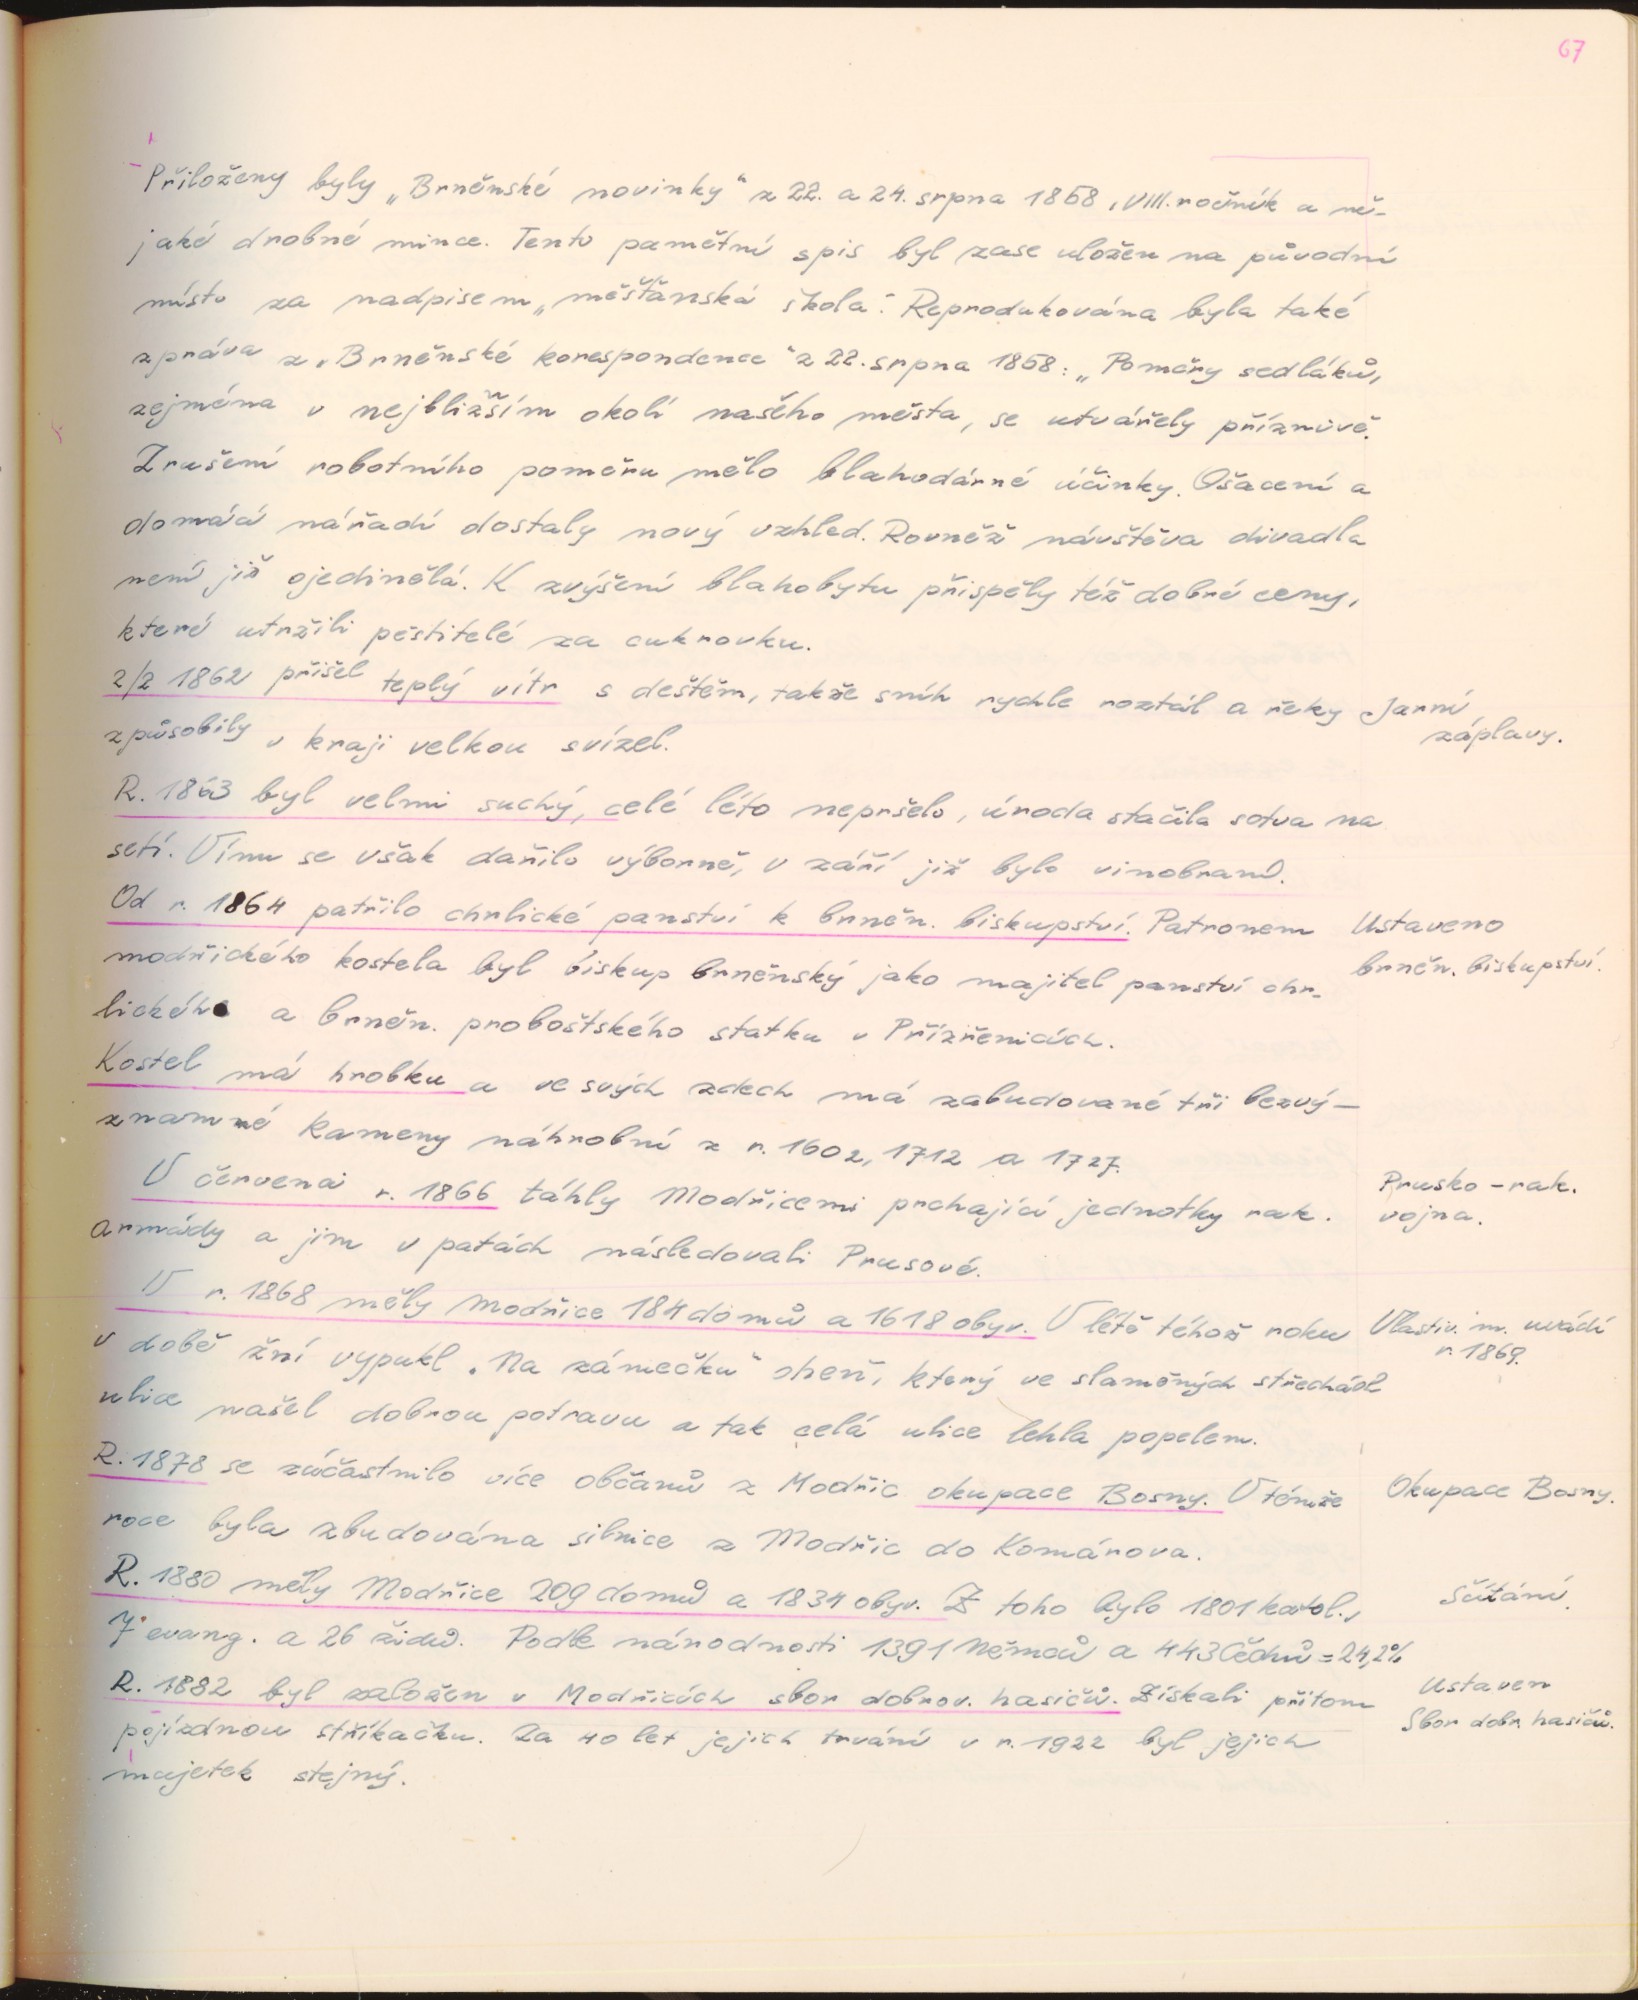 67
Přiloženy byly „Brněnské novinky“ z 22. a 24. srpna 1858, VIII. ročník a ně-
jaké drobné mince. Tento pamětní spis byl zase uložen na původní
místo za nadpisem „měšťanská škola“. Reprodukována byla také
zpráva z „Brněnské korespondence“ z 22. srpna 1858: „Poměry sedláků,
zejména v nejbližším okolí našeho města, se utvářely příznivě.
Zrušení robotního poměru mělo blahodárné účinky. Ošacení a
domácí nářadí dostaly nový vzhled. Rovněž návštěva divadla
není již ojedinělá. K zvýšení blahobytu přispěly též dobré ceny,
které utržili pěstitelé za cukrovku.
2/2 1862 přišel teplý vítr s deštěm, takže sníh rychle roztál a řeky
Jarní
záplavy.
způsobily v kraji velkou svízel.
R. 1863 byl velmi suchý, celé léto nepršelo, úroda stačila sotva na
setí. Vínu se však dařilo výborně, v září již bylo vinobraní.
Od r. 1864 patřilo chrlické panství k brněn. biskupství. Patronem
Ustaveno
brněn. biskupství.
modřického kostela byl biskup brněnský jako majitel panství chr-
lického a brněn. proboštského statku v Přízřenicích.
Kostel má hrobku a ve svých zdech má zabudované tři bezvý-
znamné kameny náhrobní z r. 1602, 1712 a 1727.
V červenci r. 1866 táhly Modřicemi prchající jednotky rak.
Prusko - rak.
vojna.
armády a jim v patách následovali Prusové.
V r. 1868 měly Modřice 184 domů a 1618 obyv. V létě téhož roku
Vlastiv. m. uvádí
r. 1869.
v době žní vypukl „Na zámečku“ oheň, který ve slaměných střechách
ulice našel dobrou potravu a tak celá ulice lehla popelem.
R. 1878 se zúčastnilo více občanů z Modřic okupace Bosny. V témže
Okupace Bosny.
roce byla zbudována silnice z Modřic do Komárova.
R. 1880 měly Modřice 209 domů a 1834 obyv. Z toho bylo 1801 katol.,
Sčítání.
7 evang. a 26 židů. Podle národnosti 1391 Němců a 443 Čechů = 24,2%
R. 1882 byl založen v Modřicích sbor dobrov. hasičů. Získali přitom
Ustaven
Sbor dobr. hasičů.
pojízdnou stříkačku. Za 40 let jejich trvání v r. 1922 byl jejich
majetek stejný.